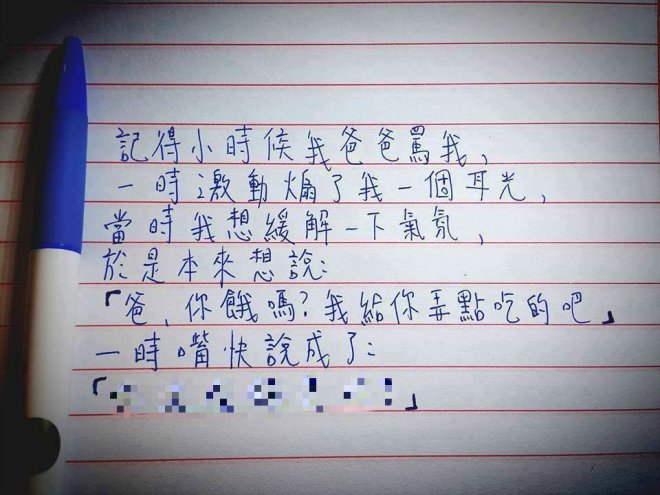 記得小時候我爸爸罵我,
一時激動煽了我一個耳光,
當時我想緩解一下氣氛,
於是本來想說:
「爸,你餓嗎?我給你弄點吃的吧」
一時嘴快說成了:
「 」